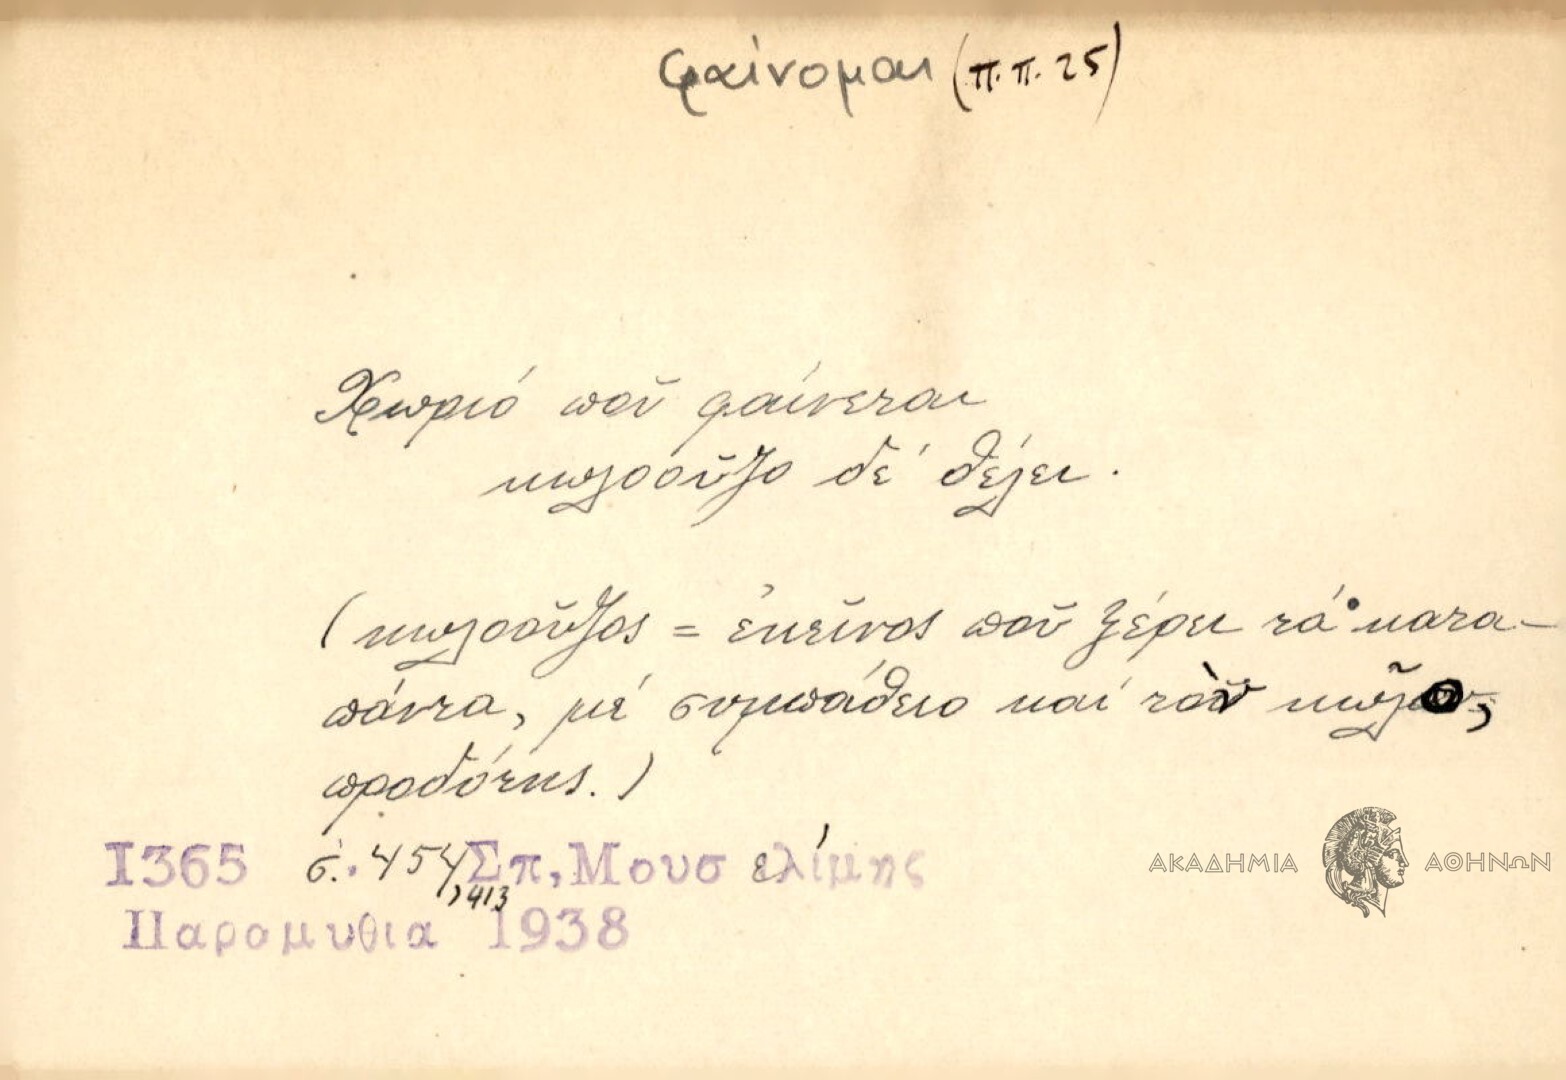 φαίνομαι (π.π. 25)
Χωριό ποῦ φαίνεται
κωλοοῦζο δέ θέλει.
(κωλοοῦζος = ἐκεῖνος ποῦ ξέρει τά κατα-
πάντα, μέ συμπάθειο καί τὸν κῶλο,
προδότης.)
1365 σ. 454, 413 Σπ, Μουσελίμης
Παραμυθια 1938
ΑΚΑΔΗΜΙΑ ΑΘΗΝΩΝ